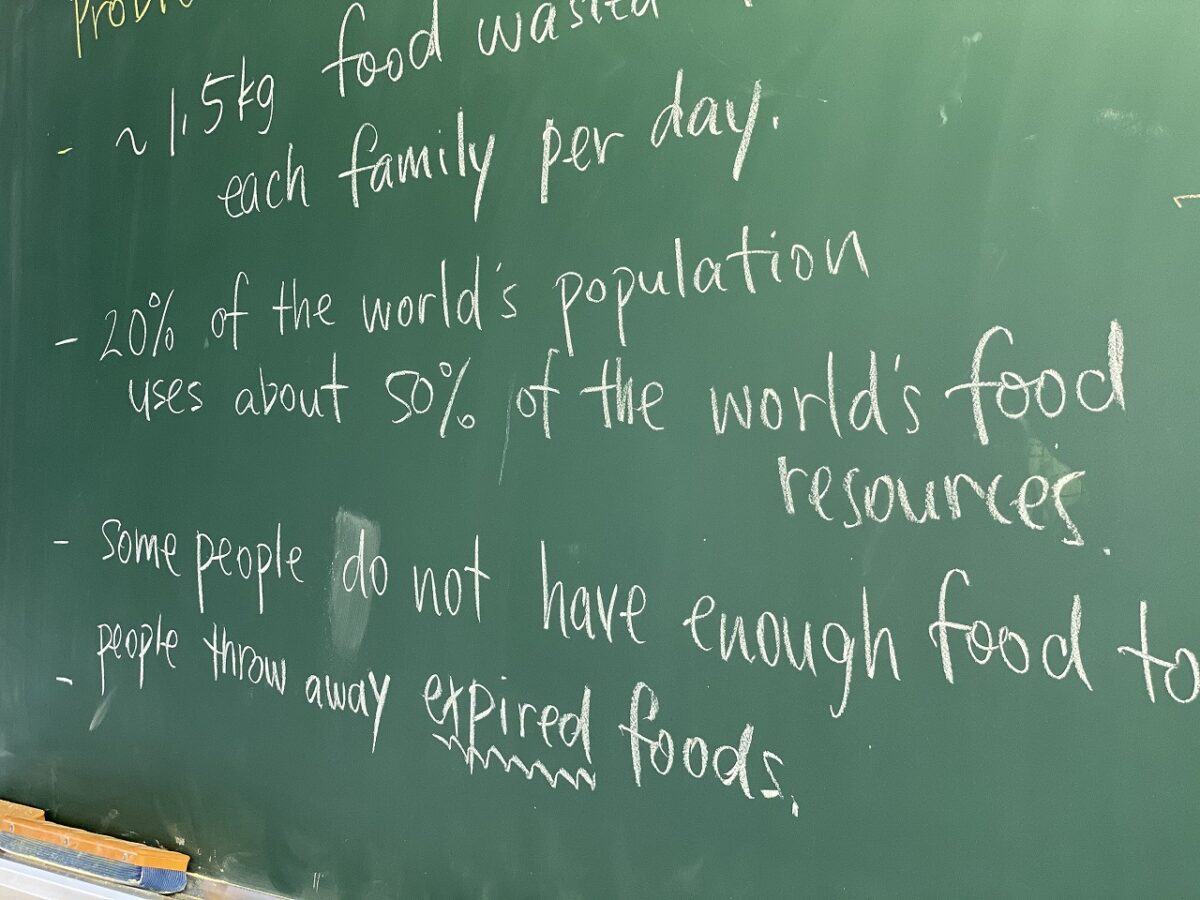 - ~1.5kg food wasted
each family per day.
- 20% of the world's population
uses about 50% of the world's food
resources.
- some people do not have enough food to
- people throw away expired foods.